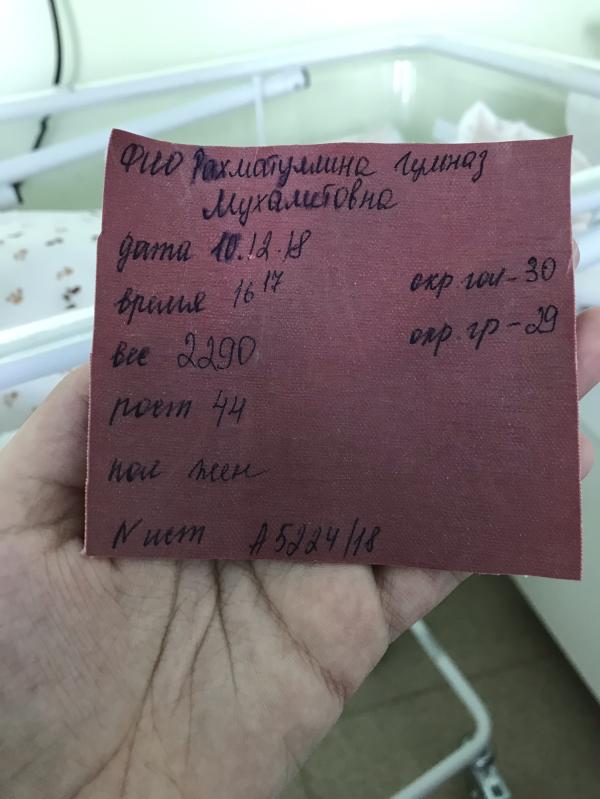 ФИО Рахматуллина Гулназ
Мухаметовна
дата 10.12.18
время 16 17
окр. гол - 30
вес 2290
окр. гр - 29
рост 44
пол жен
N ист А 5224/18